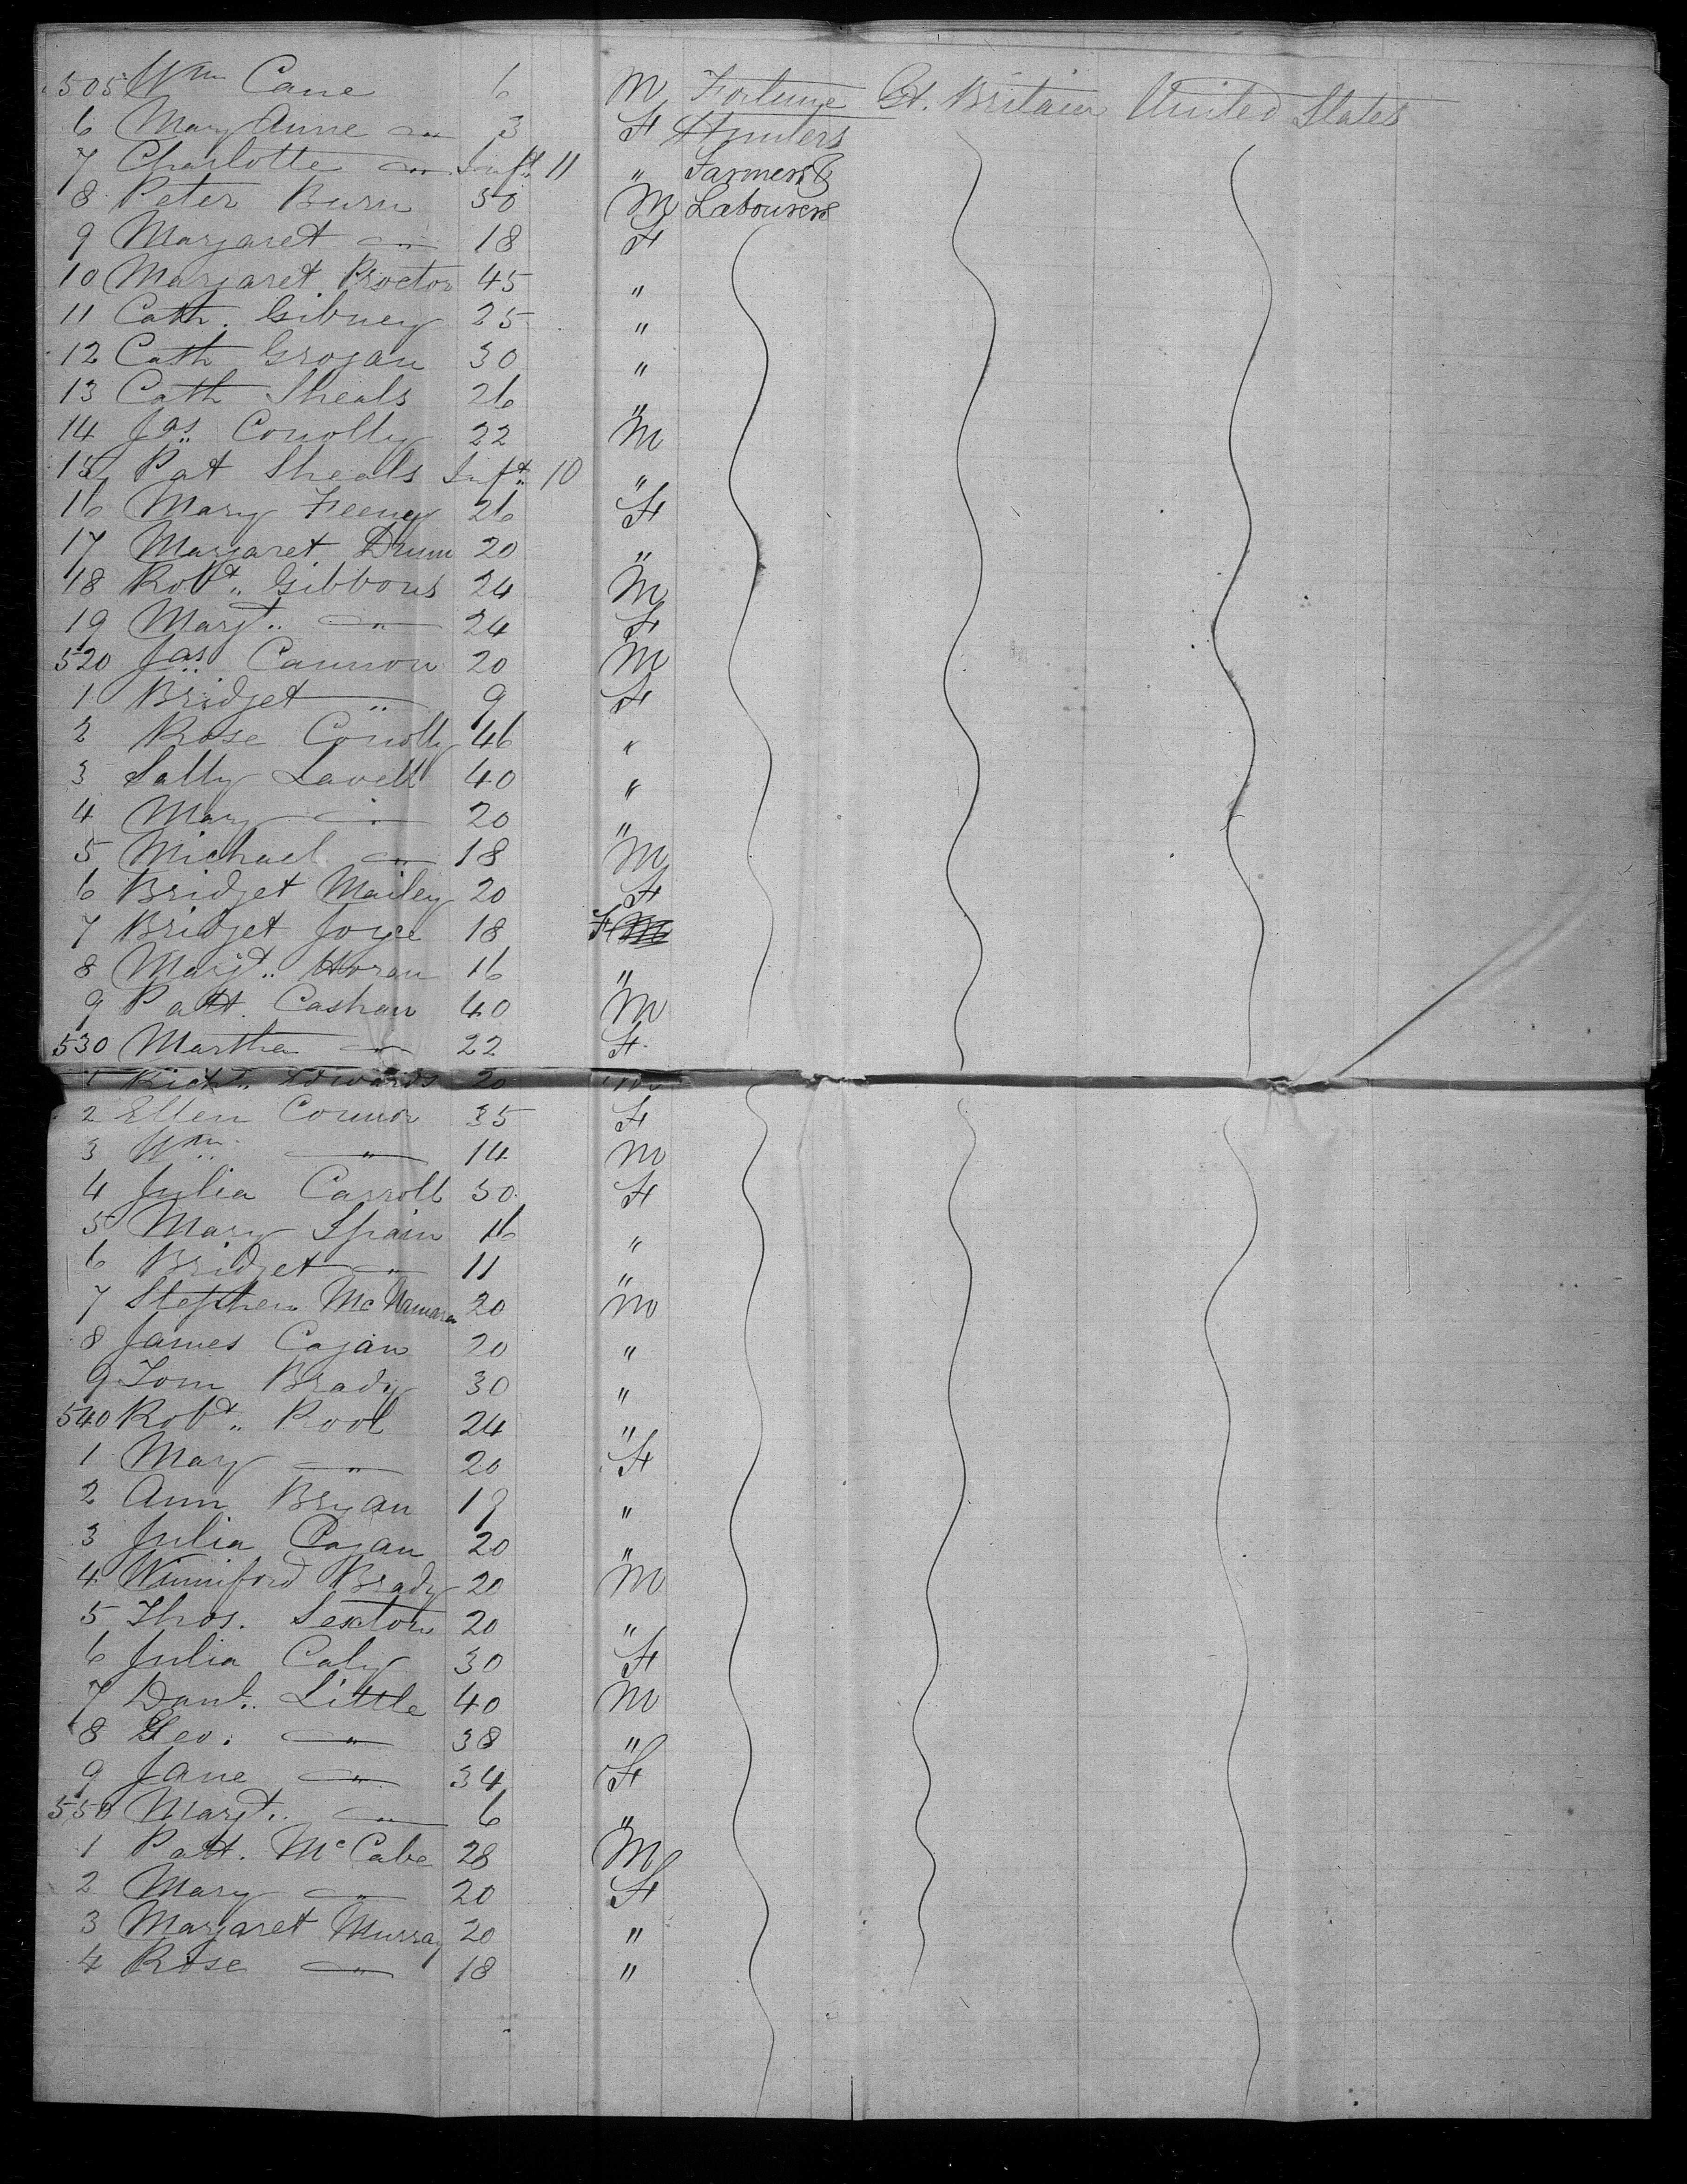 505 Wm Cane 6 M Fortune Gt. Britain United States
6 Mary Anne " 3 F Hunters
7 Charlotte " Inft. 11 " Farmers &
8 Peter Burn 30 M Labourers
9 Margaret " 18 F
10 Margaret Proctor 45 "
11 Cath. Gibney 25 "
12 Cath Grogan 30 "
13 Cath Sheals 26 "
14 Jas. Conolly 22 M
15 Pat Sheals Inft. 10 "
16 Mary Feeney 26 F
17 Margaret Drum 20 "
18 Robt. Gibbons 24 M
19 Margt. " 24 F
520 Jas. Cannon 20 M
1 Bridget " 9 F
2 Rose Conolly 46 "
3 Sally Lavell 40 "
4 Mary " 20 "
5 Michael " 18 M
6 Bridget Mailey 20 F
7 Bridget Joyce 18 F
8 Margt. Horan 16 "
9 Patt. Cashan 40 M
530 Martha " 22 F
1 Richd. Edwards 20 M
2 Ellen Connor 35 F
3 Wm. " 14 M
4 Julia Carroll 50 F
5 Mary Spain 16 "
6 Bridget " 11 "
7 Stephen McNamara 20 M
8 James Cagan 20 "
9 Tom Brady 30 "
540 Robt. Pool 24 "
1 Mary " 20 F
2 Ann Bryan 19 "
3 Julia Cagan 20 "
4 Winniford Brady 20 M
5 Thos. Sexton 20 "
6 Julia Caly 30 F
7 Danl. Little 40 M
8 Geo. " 38 "
9 Jane " 34 F
550 Margt. " 6 "
1 Patt. McCabe 28 M
2 Mary " 20 F
3 Margaret Murray 20 "
4 Rose " 18 "